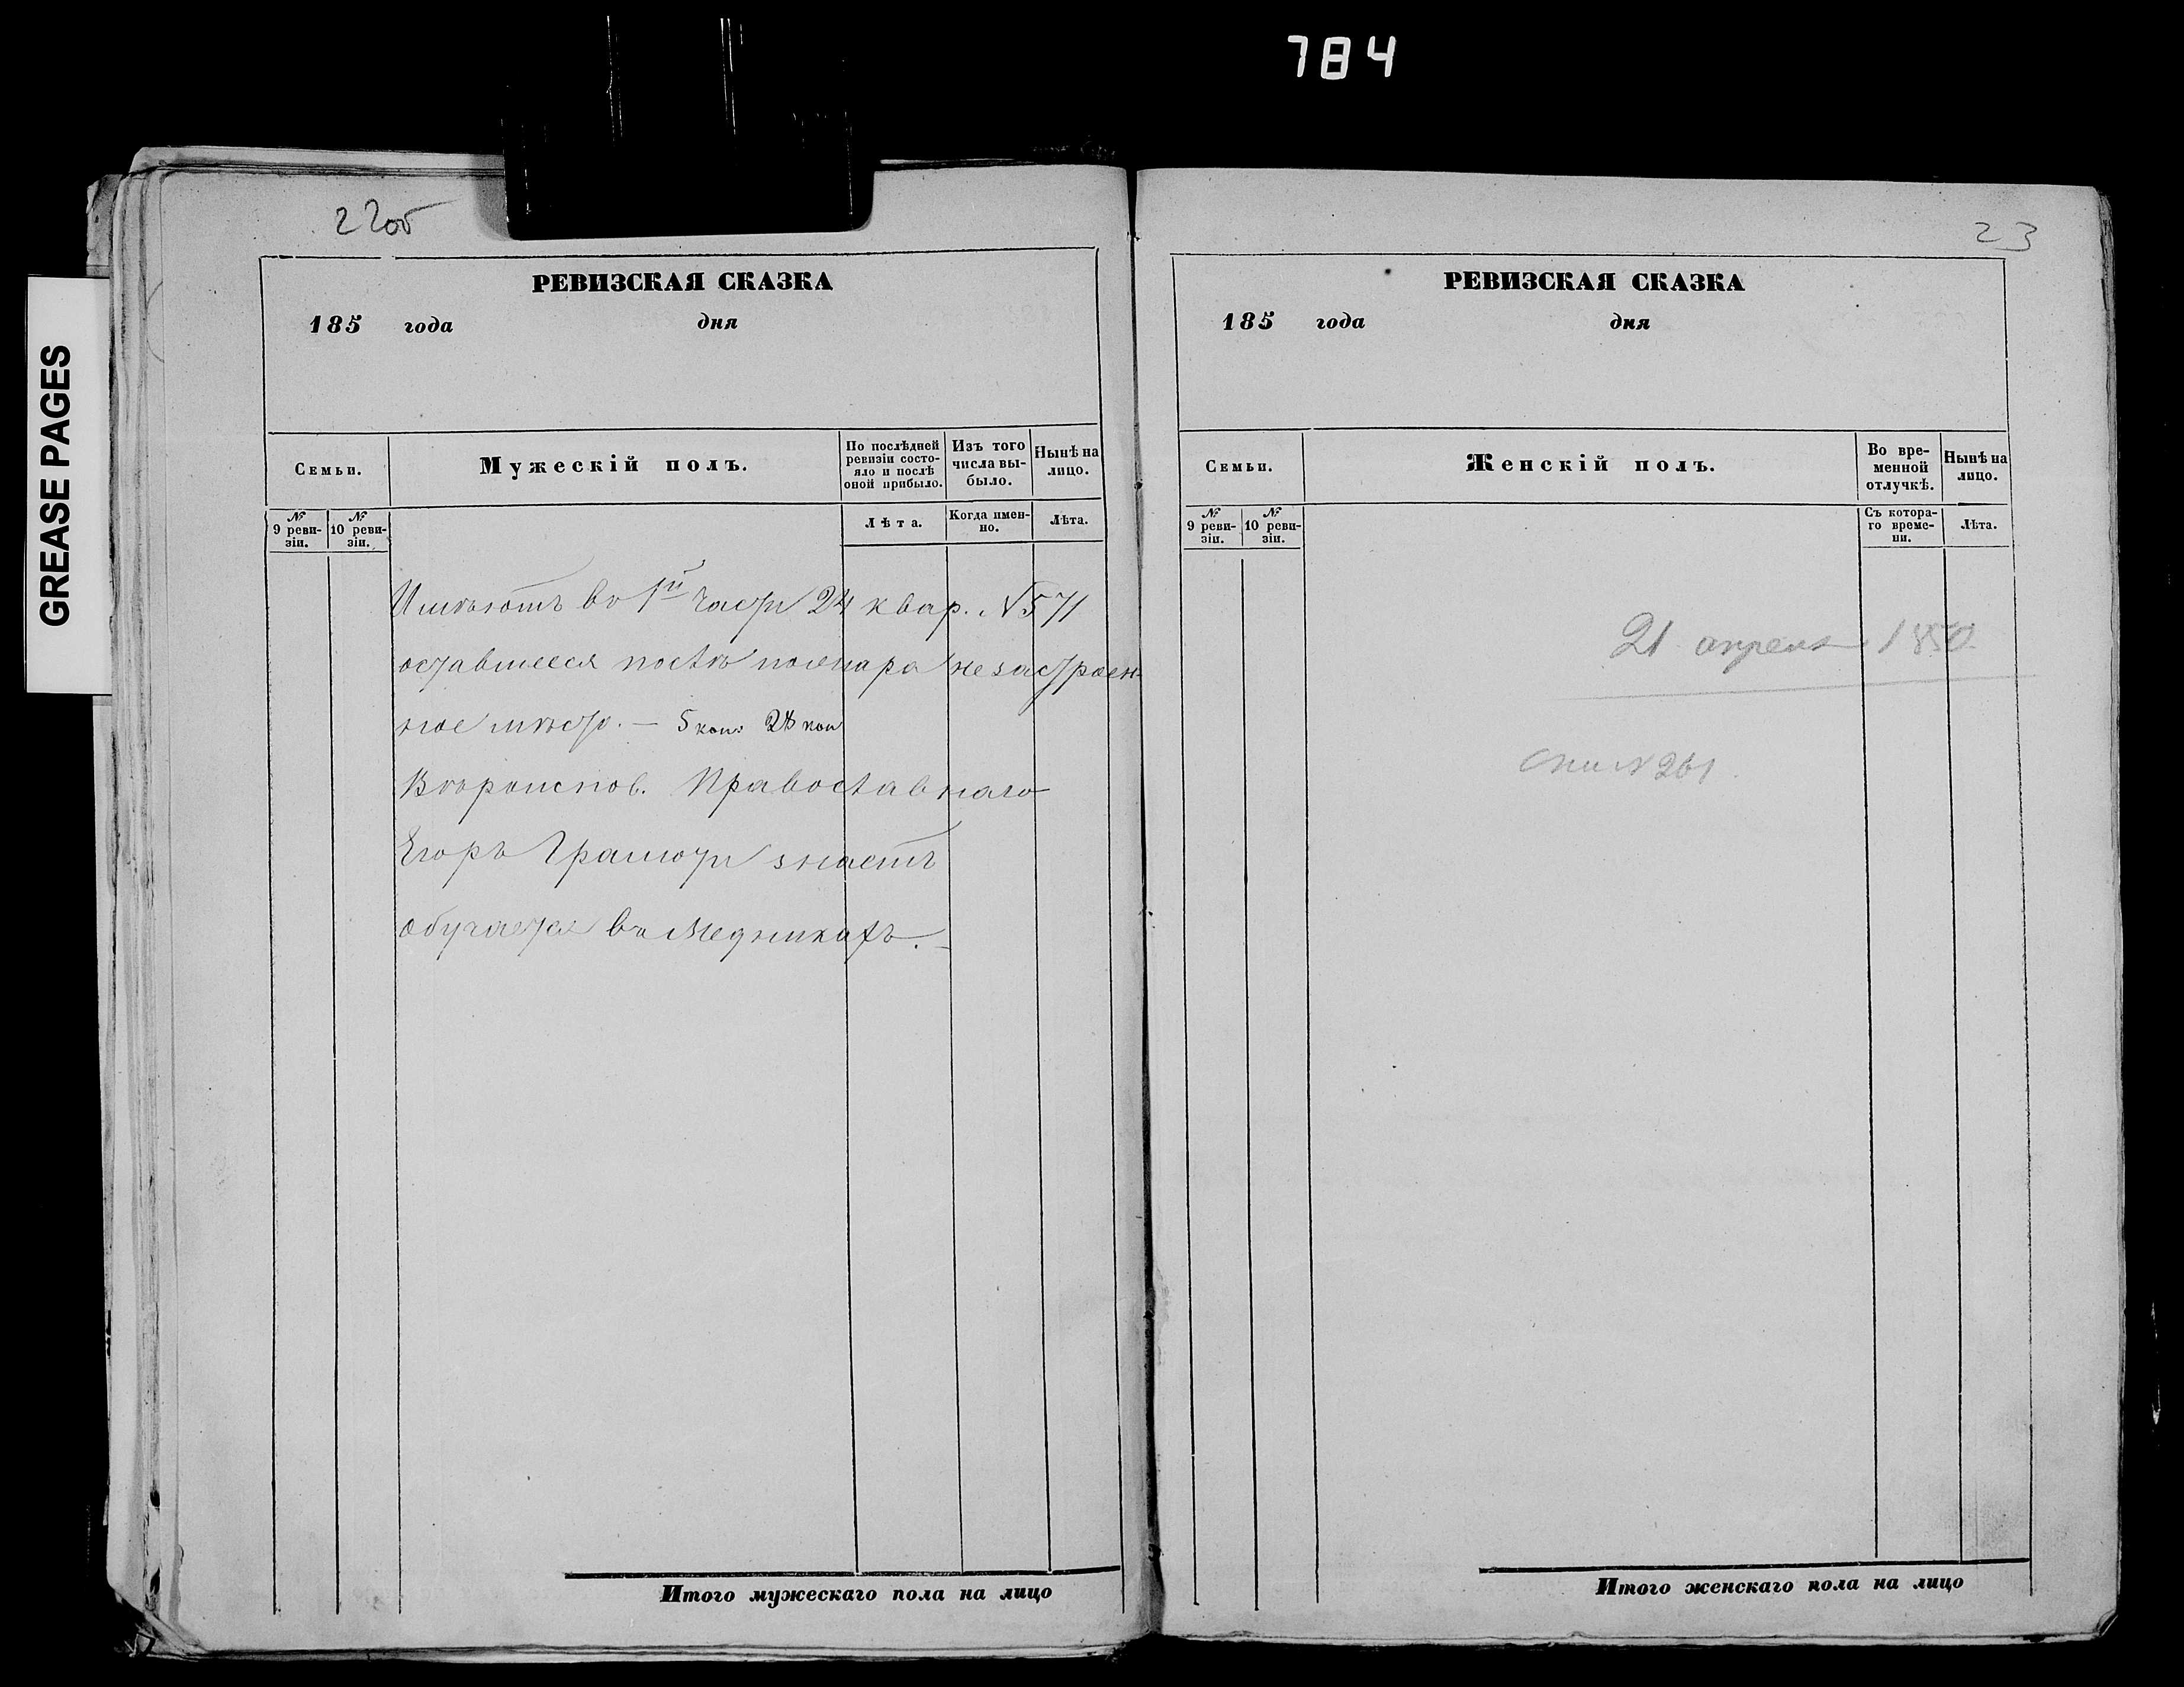 784
GREASE PAGES
22об
РЕВИЗСКАЯ СКАЗКА
185 года дня
Семьи.
Мужескій полъ.
По послѣдней ревизіи состо-
яло и послѣ оной прибыло.
Изъ того числа вы-
было.
Нынѣ на лицо.
№ 9 реви-
зіи.
№ 10 реви-
зіи.
Лѣта.
Когда имен-
но.
Лѣта.
Имѣютъ во 1й части 24 квар. №571
оставшееся послѣ пожара незастроен-
ное мѣсто. — 5 коп. 28 коп
Вѣроиспов. Православнаго
Егоръ Грамоти знаетъ
обучается въ Медникахъ. —
Итого мужескаго пола на лицо
23
РЕВИЗСКАЯ СКАЗКА
185 года дня
Семьи.
Женскій полъ.
Во вре-
менной
отлучкѣ.
Нынѣ на
лицо.
№ 9 реви-
зіи.
№ 10 реви-
зіи.
Съ котора-
го време-
ни.
Лѣта.
21 апреля 1850.
№ 261.
Итого женскаго пола на лицо